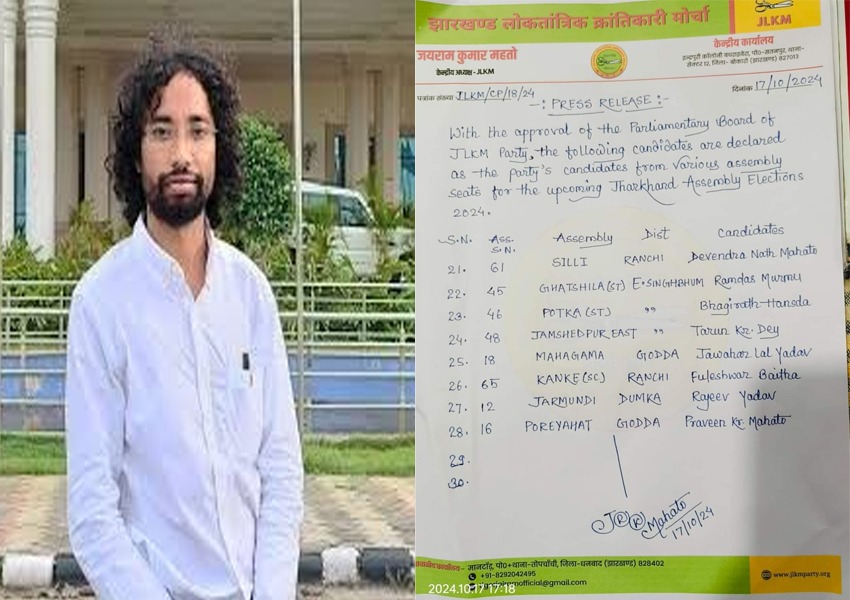 झारखण्ड लोकतांत्रिक क्रांतिकारी मोर्चा
JLKM
जयराम कुमार महतो
केन्द्रीय अध्यक्ष -JLKM
केन्द्रीय कार्यालय
सेक्टर 12, जिला- बोकारो (झारखण्ड) 827013
पत्रांक संख्या JLKM/CP/18/24
दिनांक 17/10/2024
-: PRESS RELEASE :-
With the approval of the Parliamentary Board of
JLKM Party, the following candidates are declared
as the party's candidates from various assembly
seats for the upcoming Jharkhand Assembly Elections
2024.
S.N. Ass. S.N. Assembly Dist Candidates
21. 61 SILLI RANCHI Devendra Nath Mahato
22. 45 GHATSHILA (ST) E.SINGHBHUM Ramdas Murmu
23. 46 POTKA (ST) " Bhagirath Hansda
24. 48 JAMSHEDPUR EAST " Tarun Kr. Dey
25. 18 MAHAGAMA GODDA Jawahar Lal Yadav
26. 65 KANKE (SC) RANCHI Fuleshwar Baitha
27. 12 JARMUNDI DUMKA Rajeev Yadav
28. 16 POREYAHAT GODDA Praveen Kr. Mahato
29.
30.
Mahato
17/10/24
मानटांड़, पो०+थाना-तोपचाँची, जिला-धनबाद (झारखण्ड) 828402
+91-8292042495
official@gmail.com
www.jlkmparty.org
2024.10.17 17:18